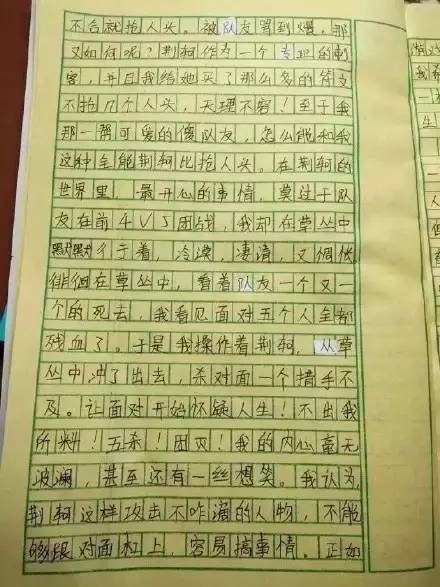 不合就抢人头。被队友骂到爆。那
又如何呢?荆轲作为一个专业的刺
客,并且我给她买了那么多的符文
不抢几个人头,天理不容!至于我
那一帮可爱的傻队友,怎么能和我
这种全能荆轲比抢人头。在荆轲的
世界里,最开心的事情,莫过于队
友在前4V5团战,我却在草丛中
默默行于着,冷漠,凄清,又惆怅
徘徊在草丛中,看着队友一个又一
个的死去,我看见面对五个人全都
残血了。于是我操作着荆轲,从草
丛中冲了出去,杀对面一个措手不
及。让面对开始怀疑人生!不出我
所料!五杀!团灭!我的内心毫无
波澜,甚至还有一丝想笑。我认为,
荆轲这样攻击不咋滴的人物,不能
够跟对面杠上,容易搞事情。正如